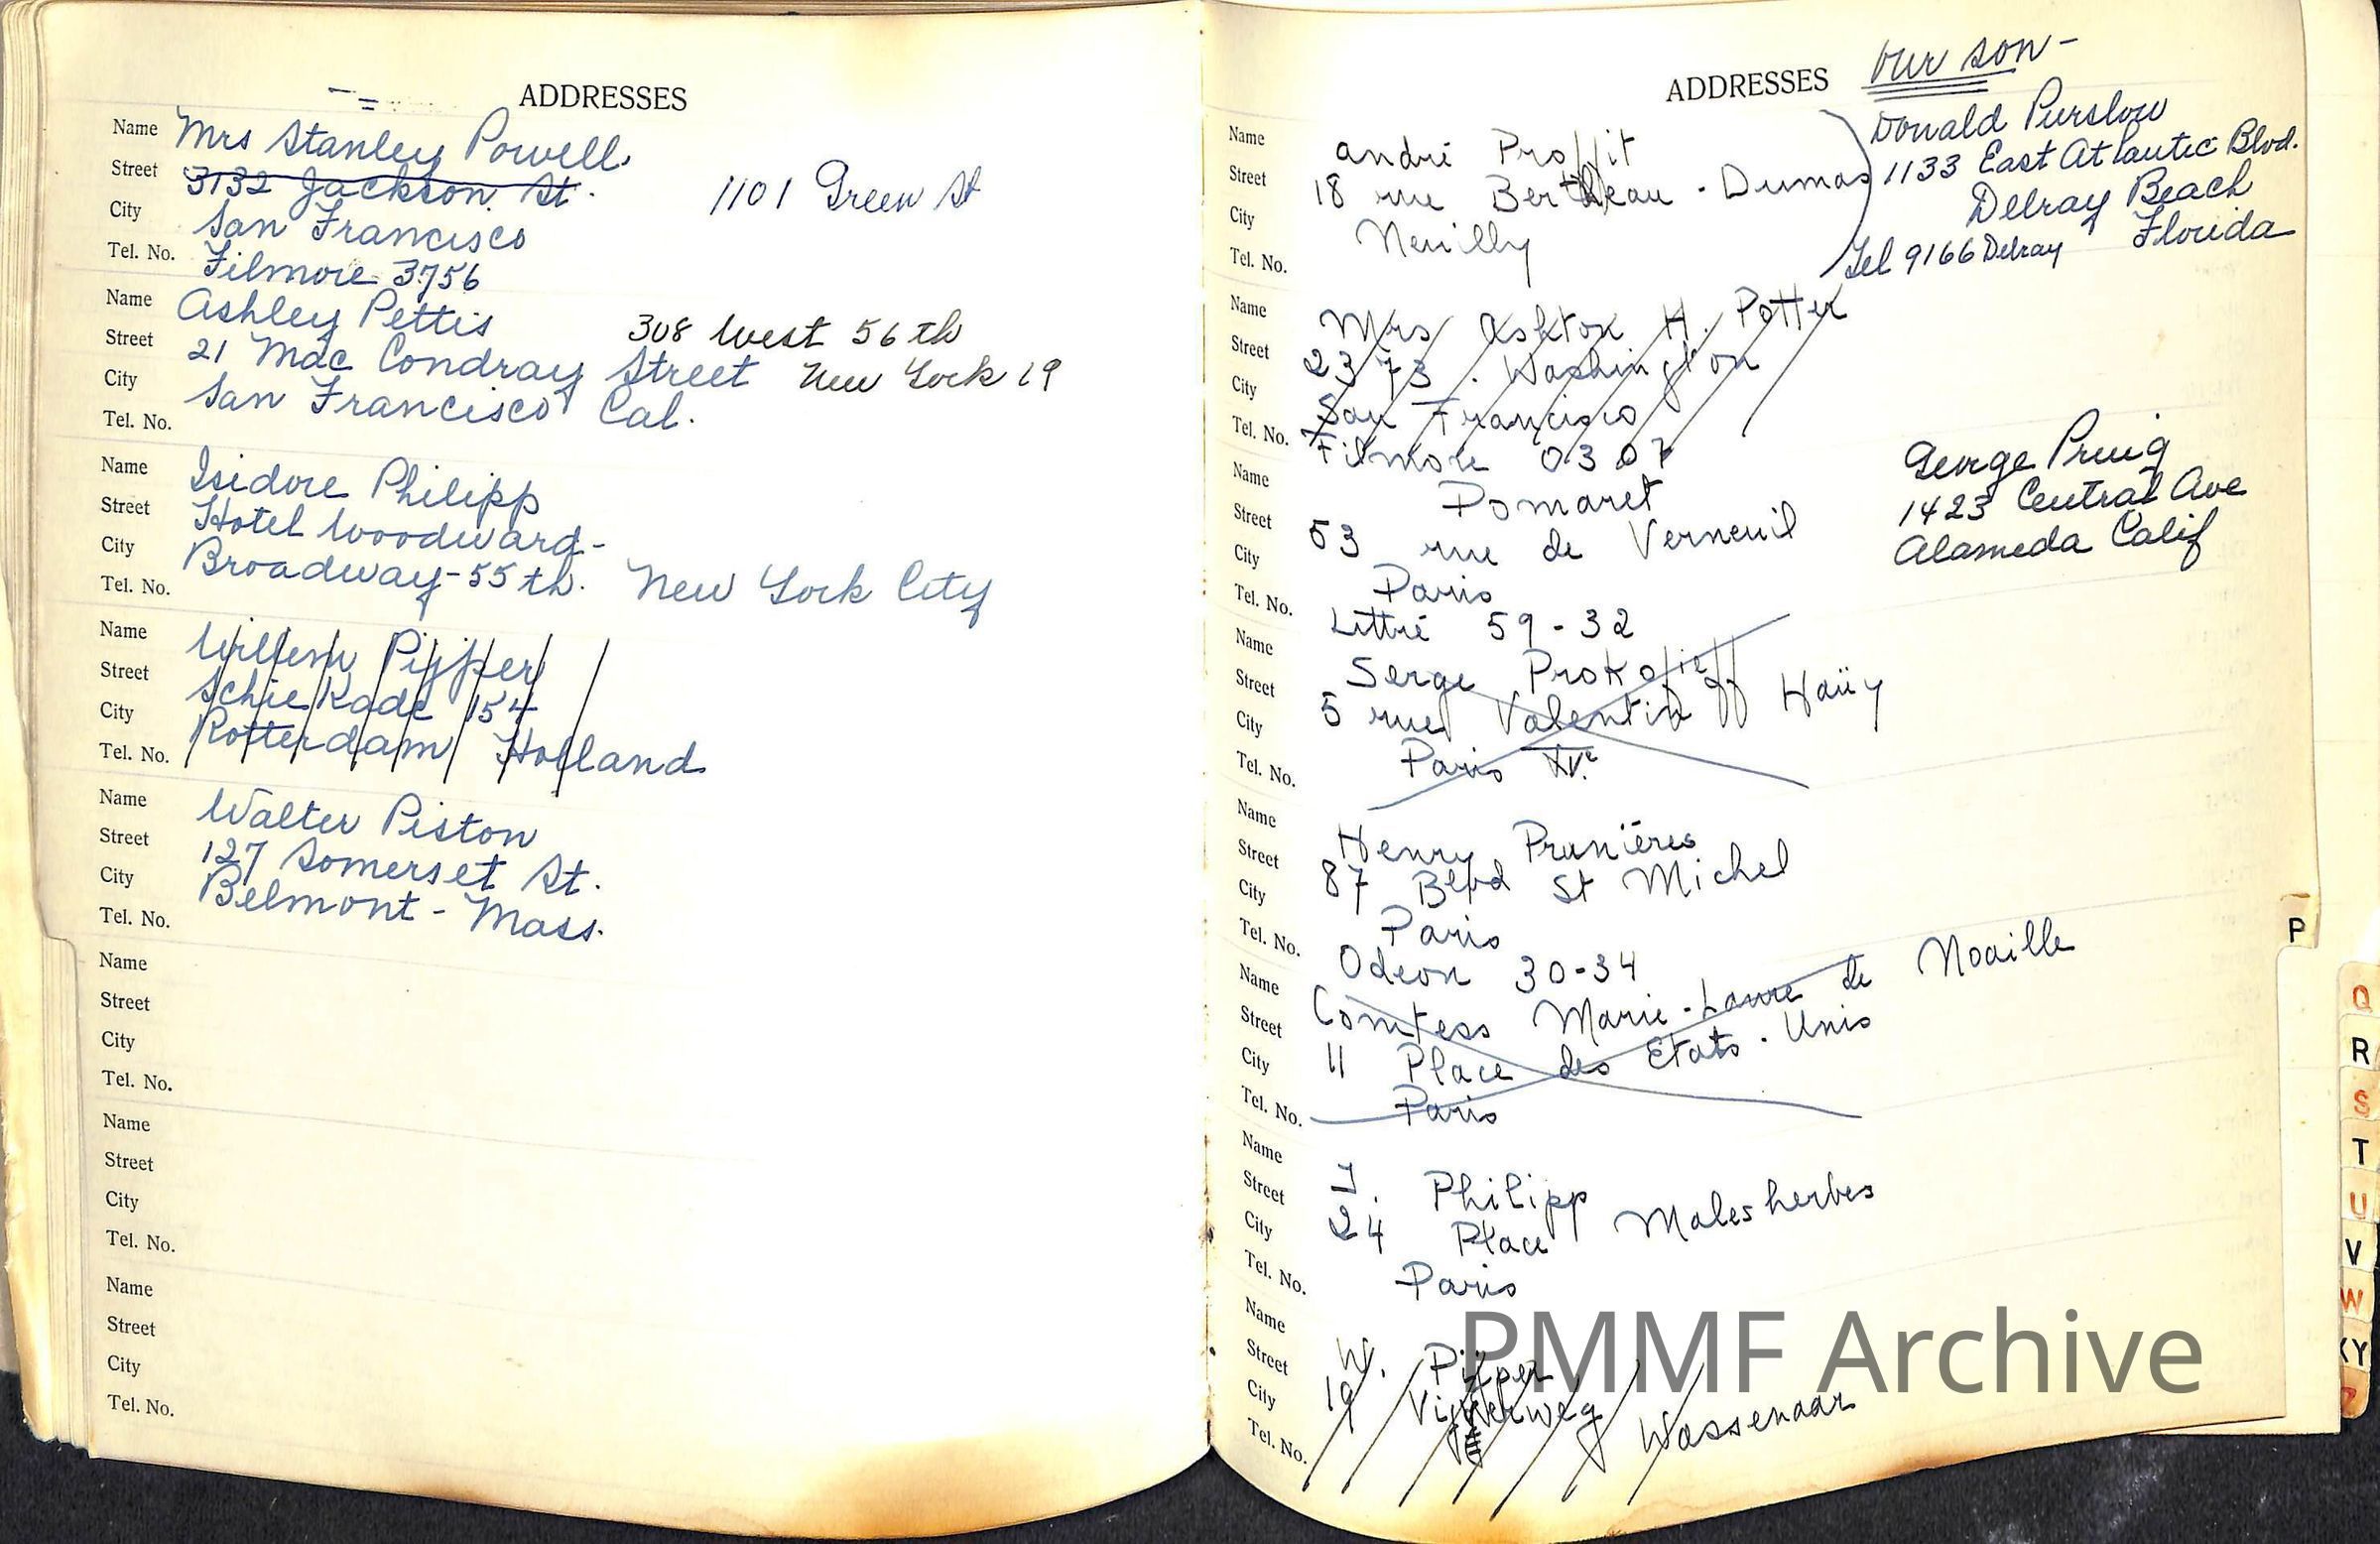 ADDRESSES
Name Mrs Stanley Powell.
Street 3132 Jackson St. 1101 Green St
City San Francisco
Tel. No. Filmore 3756
Name Ashley Pettis
308 West 56th
Street 21 Mac Condray Street New York 19
City San Francisco Cal.
Tel. No.
Name Isidore Philipp
Street Hotel Woodward-
City Broadway-55th. New York City
Tel. No.
Name Willem Pijper
Street Schie Kade 154
City Rotterdam Holland
Tel. No.
Name Walter Piston
Street 127 Somerset St.
City Belmont - Mass.
Tel. No.
Name
Street
City
Tel. No.
Name
Street
City
Tel. No.
Name
Street
City
Tel. No.
ADDRESSES
Our son-
Donald Purslow
1133 East Atlantic Blvd.
Delray Beach
Florida
Tel 9166 Delray
Name André Proffit
Street 18 rue Bertheau-Dumas
City Neuilly
Tel. No.
Name Mrs Ashton H. Potter
Street 2373. Washington
City San Francisco
Tel. No. Filmore 0307
Name Pomaret
Street 53 rue de Verneuil
City Paris
Tel. No. Littré 59-32
George Preuig
1423 Central Ave
Alameda Calif
Name Serge Prokofieff
Street 5 rue Valentin Haüy
City Paris XVe
Tel. No.
Name Henry Prunières
Street 87 Blvd St Michel
City Paris
Tel. No. Odeon 30-34
Name Comtess Marie-Laure de Noaille
Street 11 Place des Etats-Unis
City Paris
Tel. No.
Name I. Philipp
Street 24 Place Malesherbes
City Paris
Tel. No.
Name W. Pijper
Street 19 Vijverweg
City Wassenaar
Tel. No.
P
Q
R
S
T
U
V
W
XY
PMMF Archive